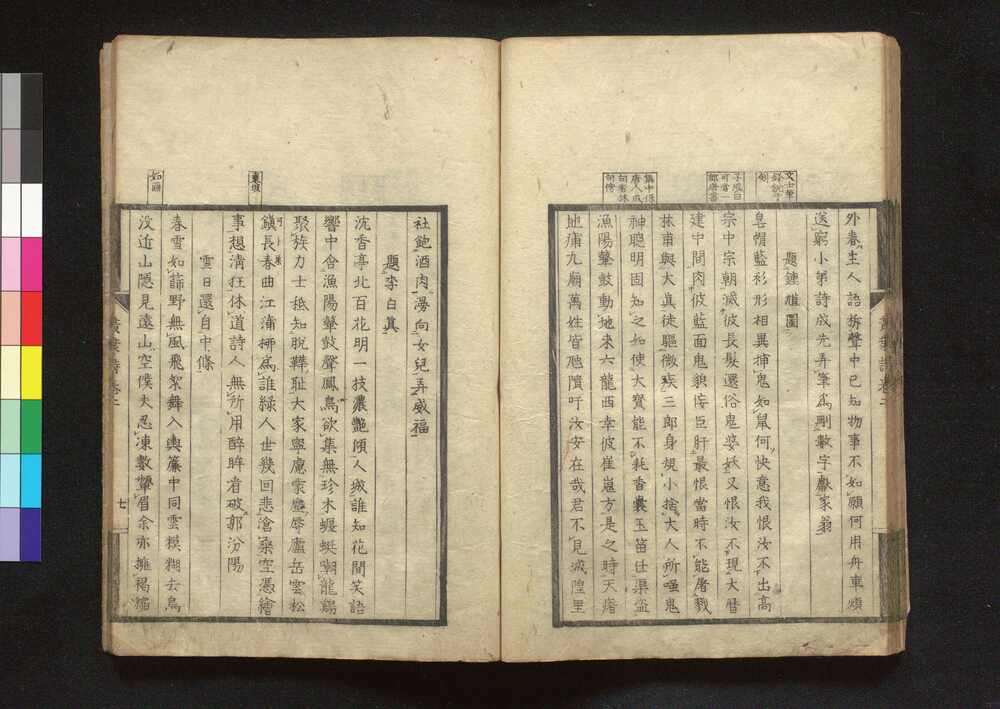 外春主人語柝聲中已知物事不如願何用舟車煩
送窮小第詩成先弄筆爲刪數字獻家翁
題鍾馗圖
皂帽藍衫形相異捕鬼如鼠何快意我恨汝不出高
宗中宗朝滅彼長髮還俗鬼婆妖又恨汝不現大曆
建中間肉彼藍面鬼貌佞臣肝最恨當時不能屠戮
林甫與太真徒驅微疾三郎身規小捨大人所嗤鬼
神聰明固知之如使大寶能不耗香囊玉笛任渠盜
漁陽鼙鼓動地來六龍西幸彼崔嵬方是之時天瘩
地痡九廟萬姓皆虺隤吁汝安在哉君不見城隍里
社飽酒肉漫向女兒弄威福
題李白真
沈香亭北百花明一枝濃艷傾人城誰知花間笑語
響中含漁陽鼙鼓聲鳳鳥欲集無珍木蝘蜓嘲龍鷄
聚族力士秖知脫鞾耻大家寧慮蒙塵辱廬岳雲松
鎖長春曲江蒲柳爲誰綠人世幾回悲滄桑空憑繪
事想清狂休道詩人無所用醉眸看破郭汾陽
雪日還自中條
春雪如篩野無風飛絮舞入輿簾中同雲模糊去鳥
没近山隱見遠山空僕夫忍凍數顰眉余亦擁褐縮
七
東坡
如篩